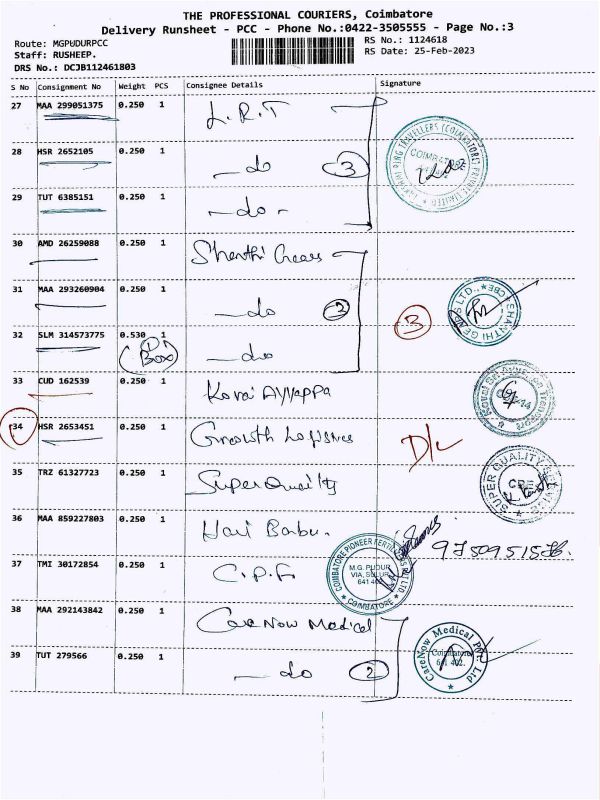 THE PROFESSIONAL COURIERS, Coimbatore
Delivery Runsheet - PCC - Phone No.:0422-3505555 - Page No.:3
Route: MGPUDURPCC RS No.: 1124618
Staff: RUSHEEP. RS Date: 25-Feb-2023
DRS No.: DCJB112461803
S No Consignment No Weight PCS Consignee Details Signature
27 MAA 299051375 0.250 1 L.R.T
28 HSR 2652105 0.250 1 - do 3
29 TUT 6385151 0.250 1 - do -
30 AMD 26259088 0.250 1 Shanthi Gears
31 MAA 293260904 0.250 1 - do 3 3
32 SLM 314573775 0.530 1 - do
Box
33 CUD 162539 0.250 1 Kovai Ayyappa
34 HSR 2653451 0.250 1 Growth Logistics D/L
35 TRZ 61327723 0.250 1 Super Quality
36 MAA 859227803 0.250 1 Hari Babu.
37 TMI 30172854 0.250 1 C.P.F
COIMBATORE PIONEER FERTILIZERS LTD
M.G. PUDUR
VIA, SULUR
641 402
COIMBATORE
38 MAA 292143842 0.250 1 Care Now Medical
39 TUT 279566 0.250 1 - do 2
CareNow Medical Pvt. Ltd
Coimbatore
641 402.